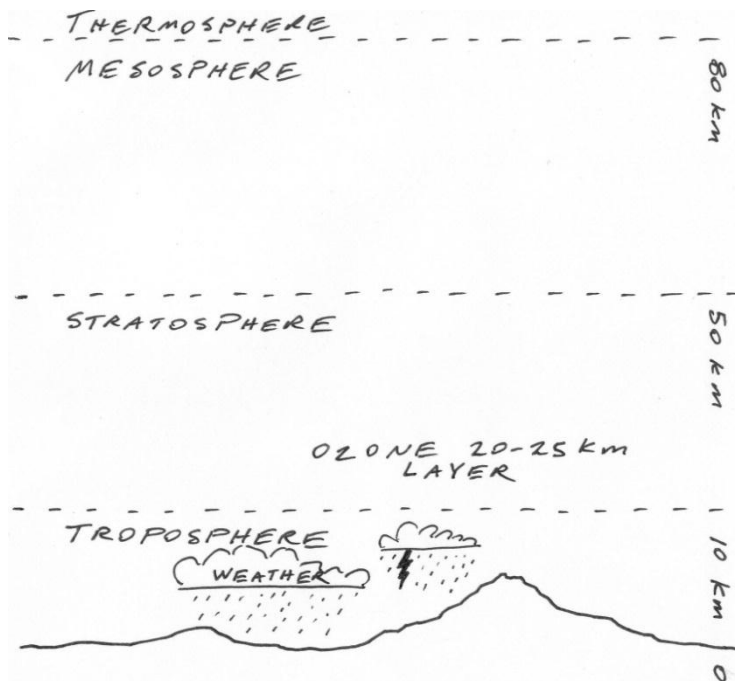 THERMOSPHERE
MESOSPHERE
80 km
STRATOSPHERE
50 km
OZONE 20-25 km
LAYER
TROPOSPHERE
WEATHER
10 km
0